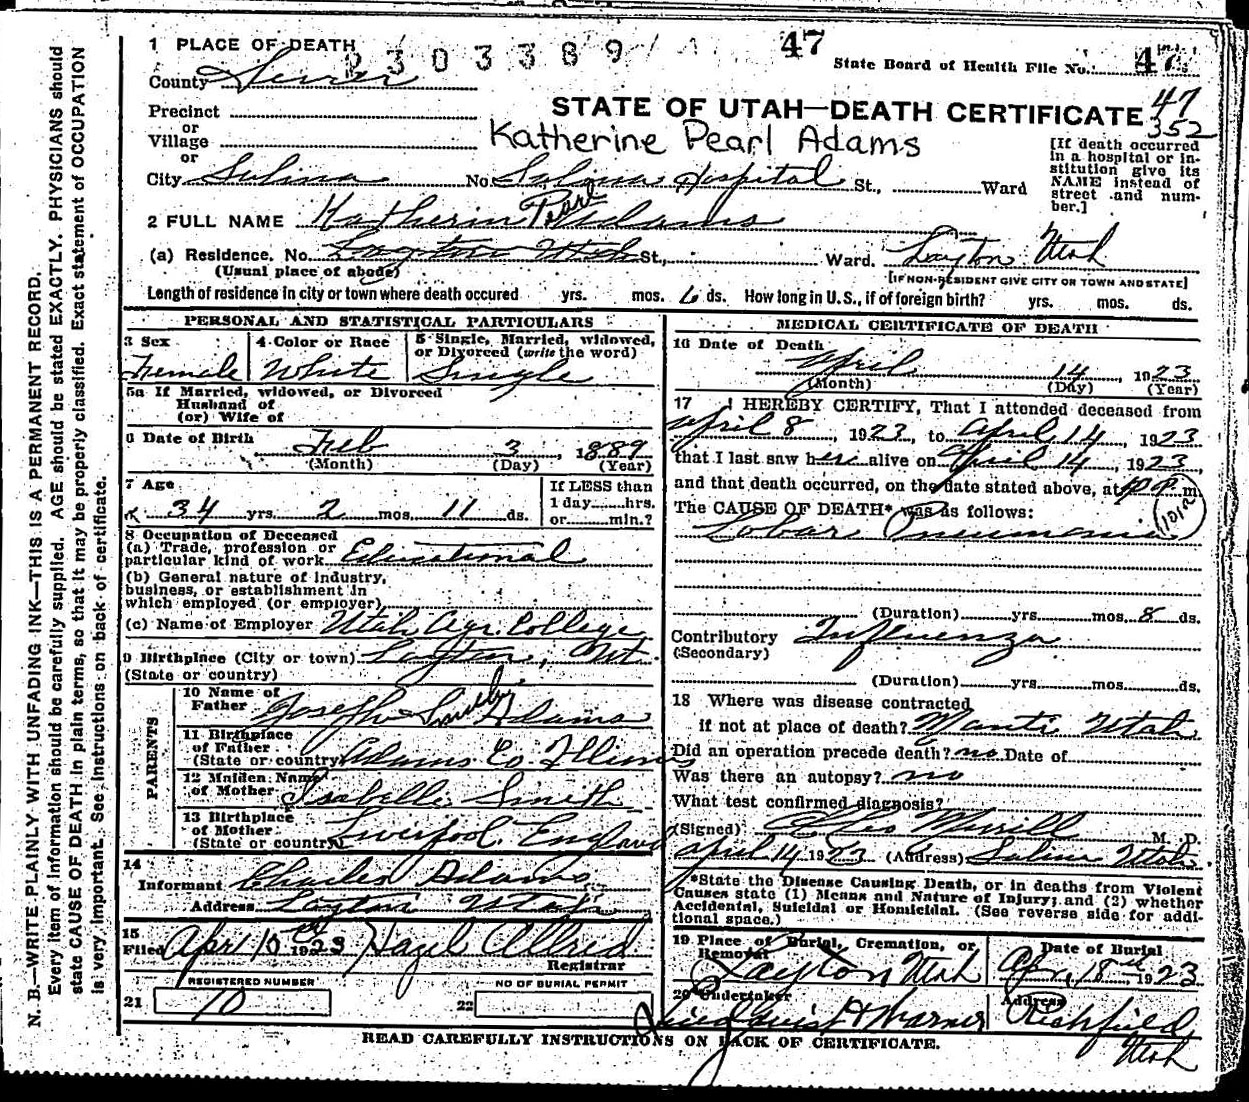 N. B.—WRITE PLAINLY WITH UNFADING INK—THIS IS A PERMANENT RECORD.
Every item of information should be carefully supplied. AGE should be stated EXACTLY. PHYSICIANS should
state CAUSE OF DEATH in plain terms, so that it may be properly classified. Exact statement of OCCUPATION
is very important. See instructions on back of certificate.
1 PLACE OF DEATH
2303389
47
State Board of Health File No. 47
County Sevier
STATE OF UTAH—DEATH CERTIFICATE
47
352
Precinct
or
Village
or
Katherine Pearl Adams
[If death occurred in a hospital or institution give its NAME instead of street and number.]
City Salina No. Salina Hospital St., Ward
2 FULL NAME Katherin Pearl Adams
(a) Residence. No. Layton Utah St., Ward. Layton Utah
(Usual place of abode) [IF NON-RESIDENT GIVE CITY OR TOWN AND STATE]
Length of residence in city or town where death occured yrs. mos. 6 ds. How long in U.S., if of foreign birth? yrs. mos. ds.
PERSONAL AND STATISTICAL PARTICULARS
3 Sex
Female
4 Color or Race
White
5 Single, Married, widowed, or Divorced (write the word)
Single
5a If Married, widowed, or Divorced
Husband of
(or) Wife of
6 Date of Birth Feb 3, 1889
(Month) (Day) (Year)
7 Age
34 yrs. 2 mos. 11 ds.
If LESS than
1 day hrs.
or min.?
8 Occupation of Deceased
(a) Trade, profession or
particular kind of work Educational
(b) General nature of Industry,
business, or establishment in
which employed (or employer)
(c) Name of Employer Utah Agr. College
9 Birthplace (City or town) Layton, Ut
(State or country)
PARENTS
10 Name of
Father Joseph Adams
11 Birthplace
of Father
(State or country) Adams Co. Illinois
12 Maiden Name
of Mother Isabelle Smith
13 Birthplace
of Mother
(State or country) Liverpool. England
14
Informant Charles Adams
Address Layton Utah
15
Filed Apr 10 1923 Hazel Allred
Registrar
REGISTERED NUMBER
21 10
NO OF BURIAL PERMIT
22
MEDICAL CERTIFICATE OF DEATH
16 Date of Death
April 14, 1923
(Month) (Day) (Year)
17 I HEREBY CERTIFY, That I attended deceased from
April 8, 1923, to April 14, 1923
that I last saw her alive on April 14, 1923,
and that death occurred, on the date stated above, at m.
The CAUSE OF DEATH* was as follows:
Lobar Pneumonia
(Duration) yrs. mos. 8 ds.
Contributory Influenza
(Secondary)
(Duration) yrs. mos. ds.
18 Where was disease contracted
if not at place of death? Manti Utah
Did an operation precede death? no Date of
Was there an autopsy? no
What test confirmed diagnosis?
(Signed) Merrill M. D.
April 14 1923 (Address) Salina Utah
*State the Disease Causing Death, or in deaths from Violent
Causes state (1) Means and Nature of Injury; and (2) whether
Accidental, Suicidal or Homicidal. (See reverse side for addi-
tional space.)
19 Place of Burial, Cremation, or
Removal
Layton, Utah
Date of Burial
Apr, 18th 1923
20 Undertaker
Warner
Address
Richfield
Utah
READ CAREFULLY INSTRUCTIONS ON BACK OF CERTIFICATE.